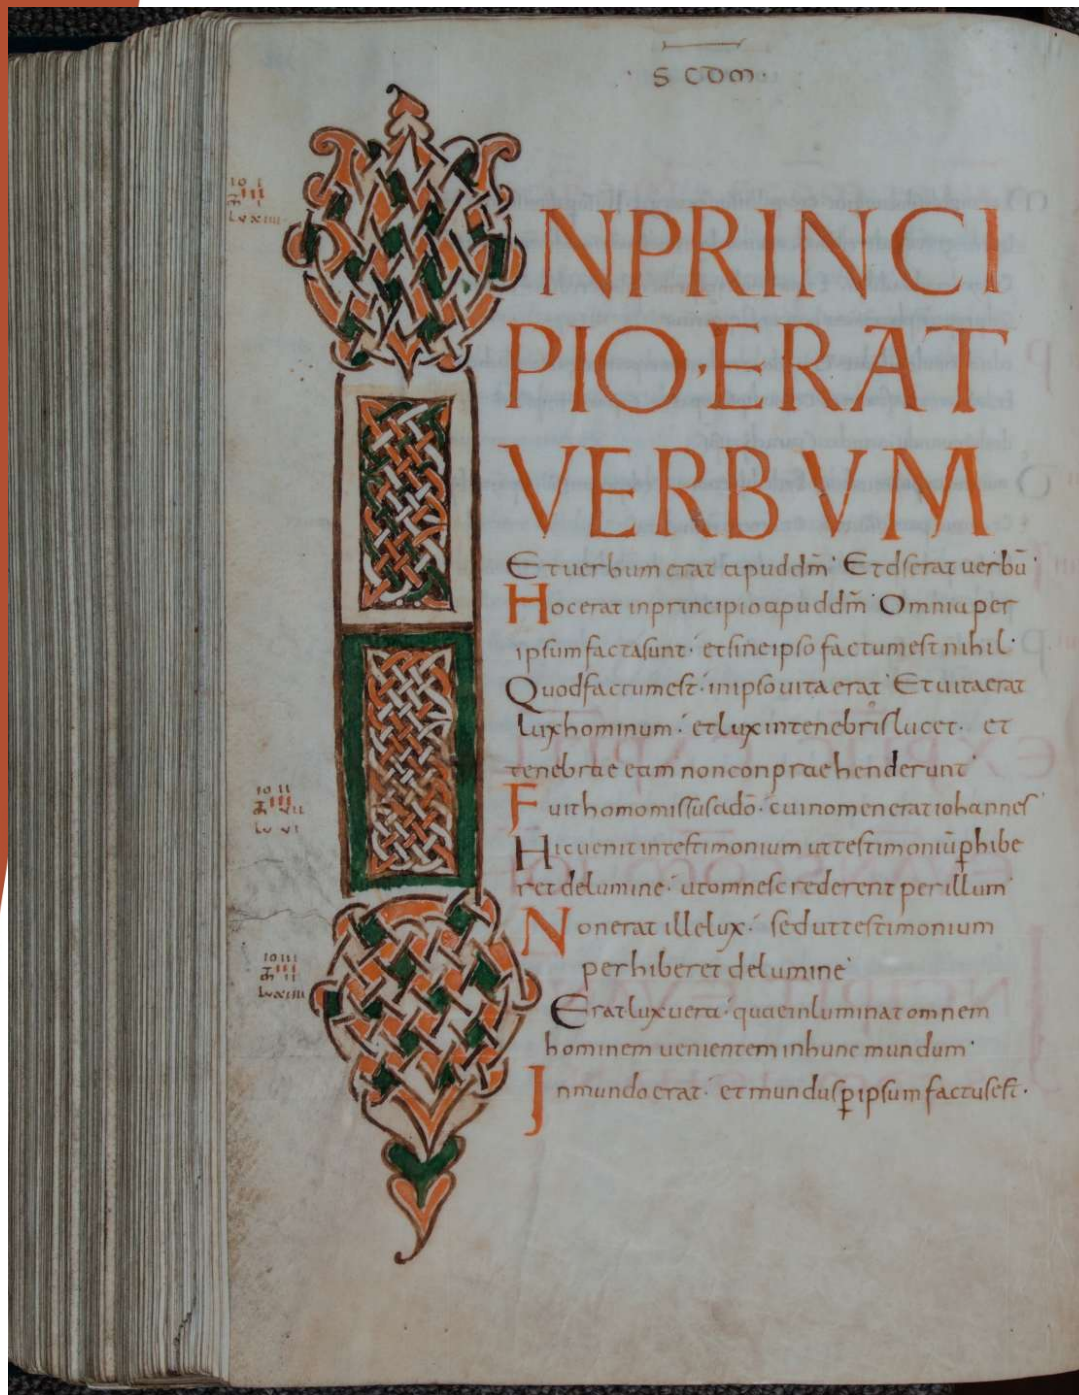 · S C D M ·
NPRINCI
PIO·ERAT
VERBVM
Et uerbum erat apud dm̄ · Et ds erat uerbū ·
Hoc erat in principio apud dm̄ · Omnia per
ipsum facta sunt · et sine ipso factum est nihil ·
Quod factum est · in ipso uita erat · Et uita erat
lux hominum · et lux in tenebris lucet · et
tenebrae eam non conpraehenderunt ·
Fuit homo missus a dō · cui nomen erat iohannes
Hic uenit in testimonium ut testimoniū ꝑhibe
ret de lumine · ut omnes crederent per illum ·
Non erat ille lux · sed ut testimonium
perhiberet de lumine ·
Erat lux uera · quae inluminat omnem
hominem uenientem in hunc mundum ·
In mundo erat · et mundus ꝑ ipsum factus est ·